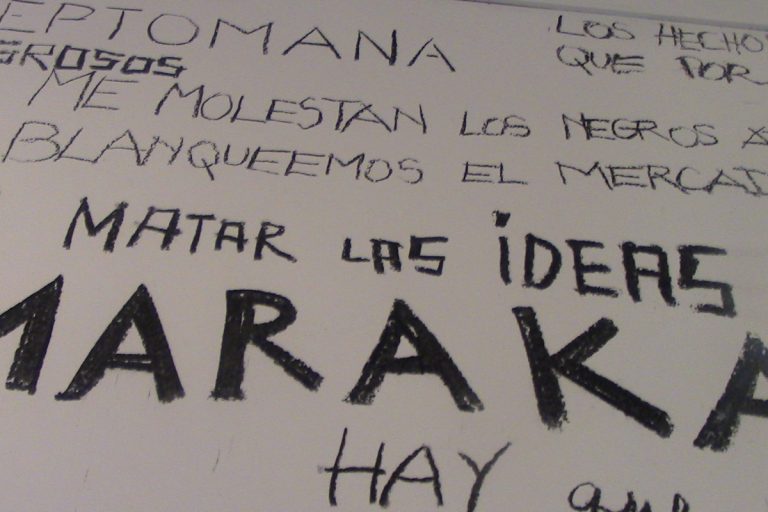 EPTOMANA
GROSOS
LOS HECHOS
QUE POR
ME MOLESTAN LOS NEGROS
BLANQUEEMOS EL MERCAD
MATAR LAS iDEAS
MARAKA
HAY que